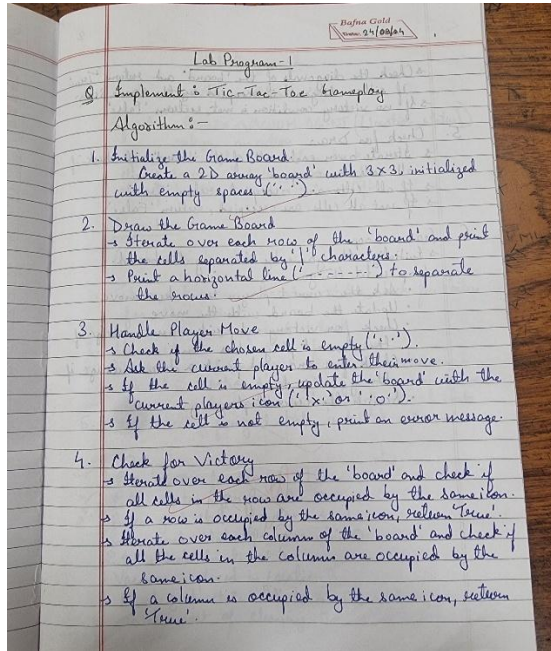 Bafna Gold
Date: 24/09/24
Lab Program-1
Q Implement : Tic-Tac-Toe Gameplay
Algorithm :-
1. Initialize the Game Board
Create a 2D array 'board' with 3x3, initialized
with empty spaces (' ').
2. Draw the Game Board
→ Iterate over each row of the 'board' and print
the cells separated by '|' characters.
→ Print a horizontal line ('- - - - - -') to separate
the rows.
3. Handle Player Move
→ Check if the chosen cell is empty (' ').
→ Ask the current player to enter their move.
→ If the cell is empty, update the 'board' with the
current players icon ('x' or 'o').
→ If the cell is not empty, print an error message.
4. Check for Victory
→ Iterate over each row of the 'board' and check if
all cells in the row are occupied by the same icon.
→ If a row is occupied by the same icon, return 'True'.
→ Iterate over each column of the 'board' and check if
all the cells in the column are occupied by the
same icon.
→ If a column is occupied by the same icon, return
'True'.